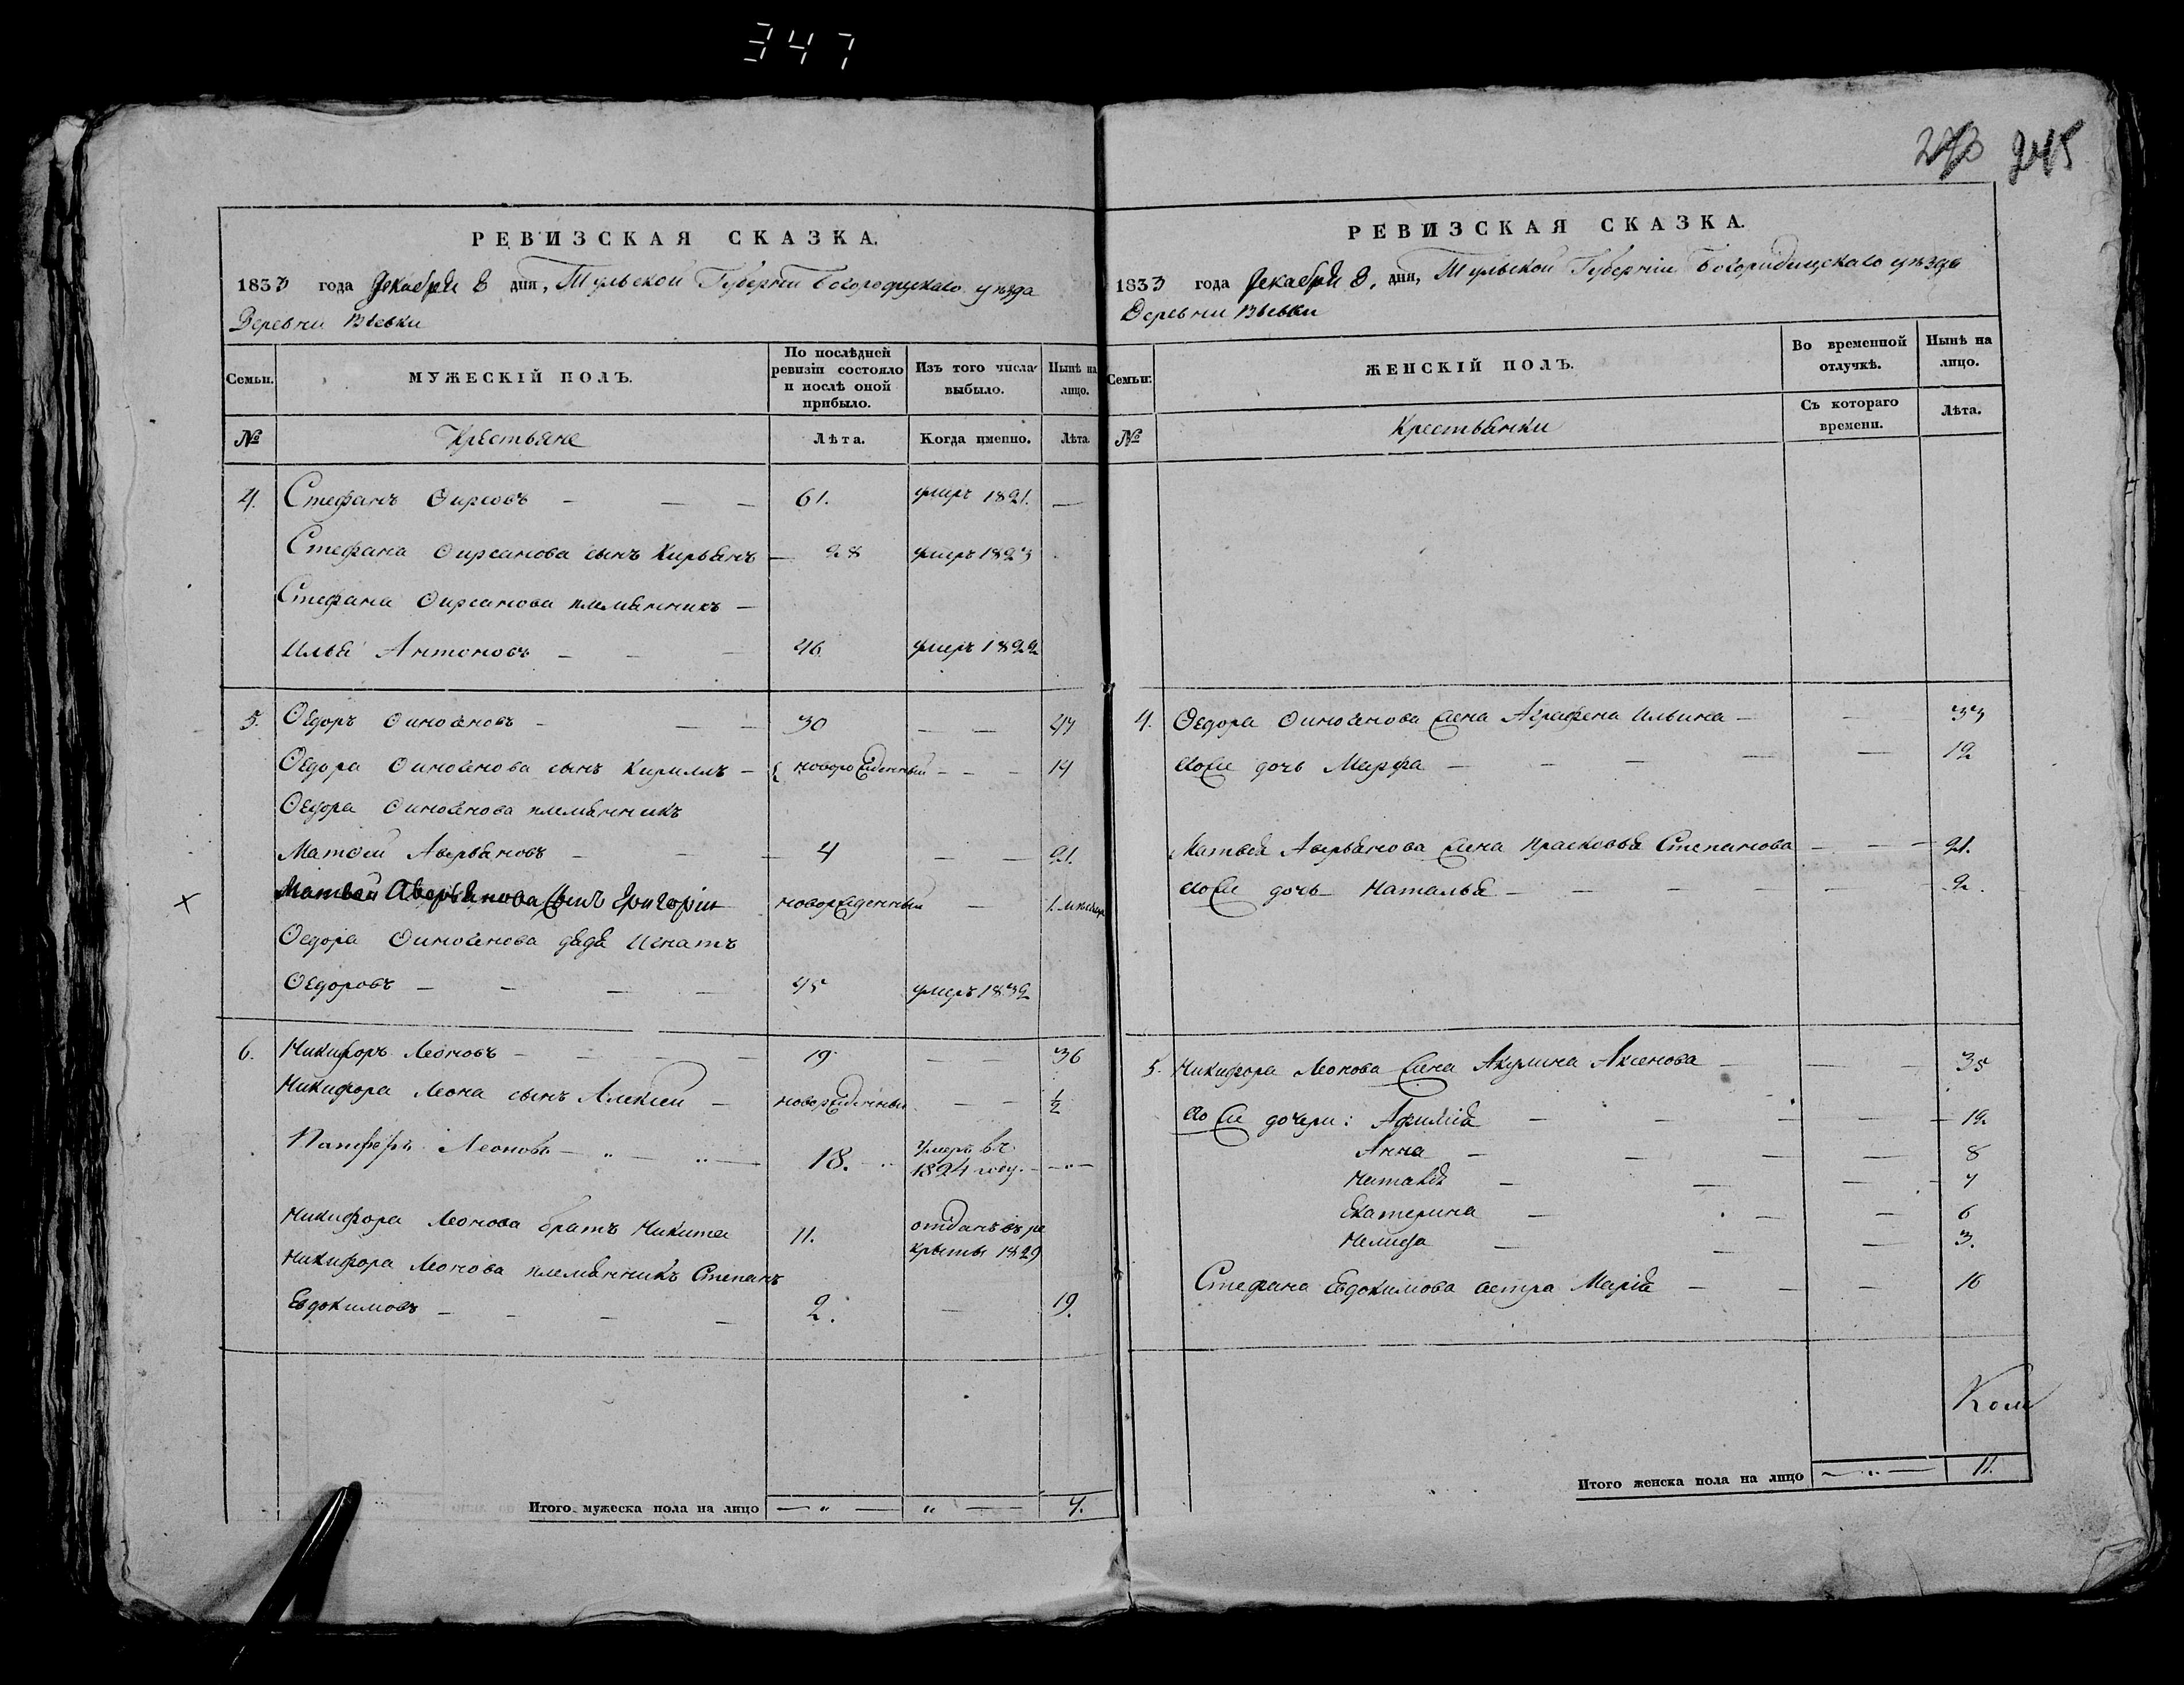 347
273 245
РЕВИЗСКАЯ СКАЗКА.
1833 года Декабря 8 дня, Тульской Губерніи Богородицкаго уѣзда
Деревни
Семьи. МУЖЕСКІЙ ПОЛЪ. По послѣдней ревизіи состояло и послѣ оной прибыло. Изъ того числа выбыло. Нынѣ на лицо.
№ Крестьяне Лѣта. Когда именно. Лѣта
4. Стефанъ 61. умеръ 1821. —
Стефана Ѳирсанова сынъ Кирьянъ — 28 умеръ 1823
Стефана Ѳирсанова племянникъ —
Илья Антоновъ — — — 46 умеръ 1822
5. Ѳедоръ — — — 30 — — 47
Ѳедора сынъ Кирилъ — новорожденный — — — 14
Ѳедора племянникъ
Матѳей Аверьяновъ — — — 4 — — 21.
Матвея Аверьянова сынъ Григорій новорожденный —
Ѳедора дядя Игнатъ
Ѳедоровъ — — — — 45 умеръ 1832
6. Никифоръ Леоновъ — — — — 19 — — 36
Никифора Леона сынъ Алексей — новорожденный — — ½
Панферъ Леоновъ — „ — „ — 18. — умеръ въ
1824 году. — „ —
Никифора Леонова братъ Никита 11. отданъ въ ре
круты 1829
Никифора Леонова племянникъ Степанъ
Евдокимовъ — — — — 2. — 19.
Итого мужеска пола на лицо — „ — „ — 7.
РЕВИЗСКАЯ СКАЗКА.
1833 года Декабря 8. дня, Тульской Губерніи Богородицкаго уѣзда
Деревни
Семьи. ЖЕНСКІЙ ПОЛЪ. Во временной отлучкѣ. Нынѣ на лицо.
№ Крестьянки Съ котораго времени. Лѣта.
4. Ѳедора жена Аграфена Ильина — — 33
его же дочь Марфа — — — — — 12
Матвея Аверьянова жена Прасковья Степанова — — — 21.
его же дочь Наталья — — — — — — 2.
5. Никифора Леонова жена Акулина Аксенова — — — 35
его же дочери: Афимія — — — — — 12
Анна — — — — — 8
— — — — 7
Екатерина — — — 6
— — — 3.
Стефана Евдокимова сестра Марія — — — 16
Итого женска пола на лицо — „ — 11.